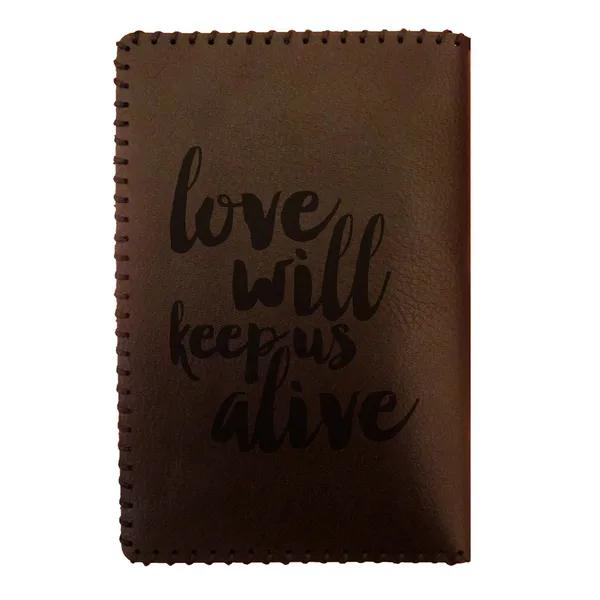 love
will
keep us
alive